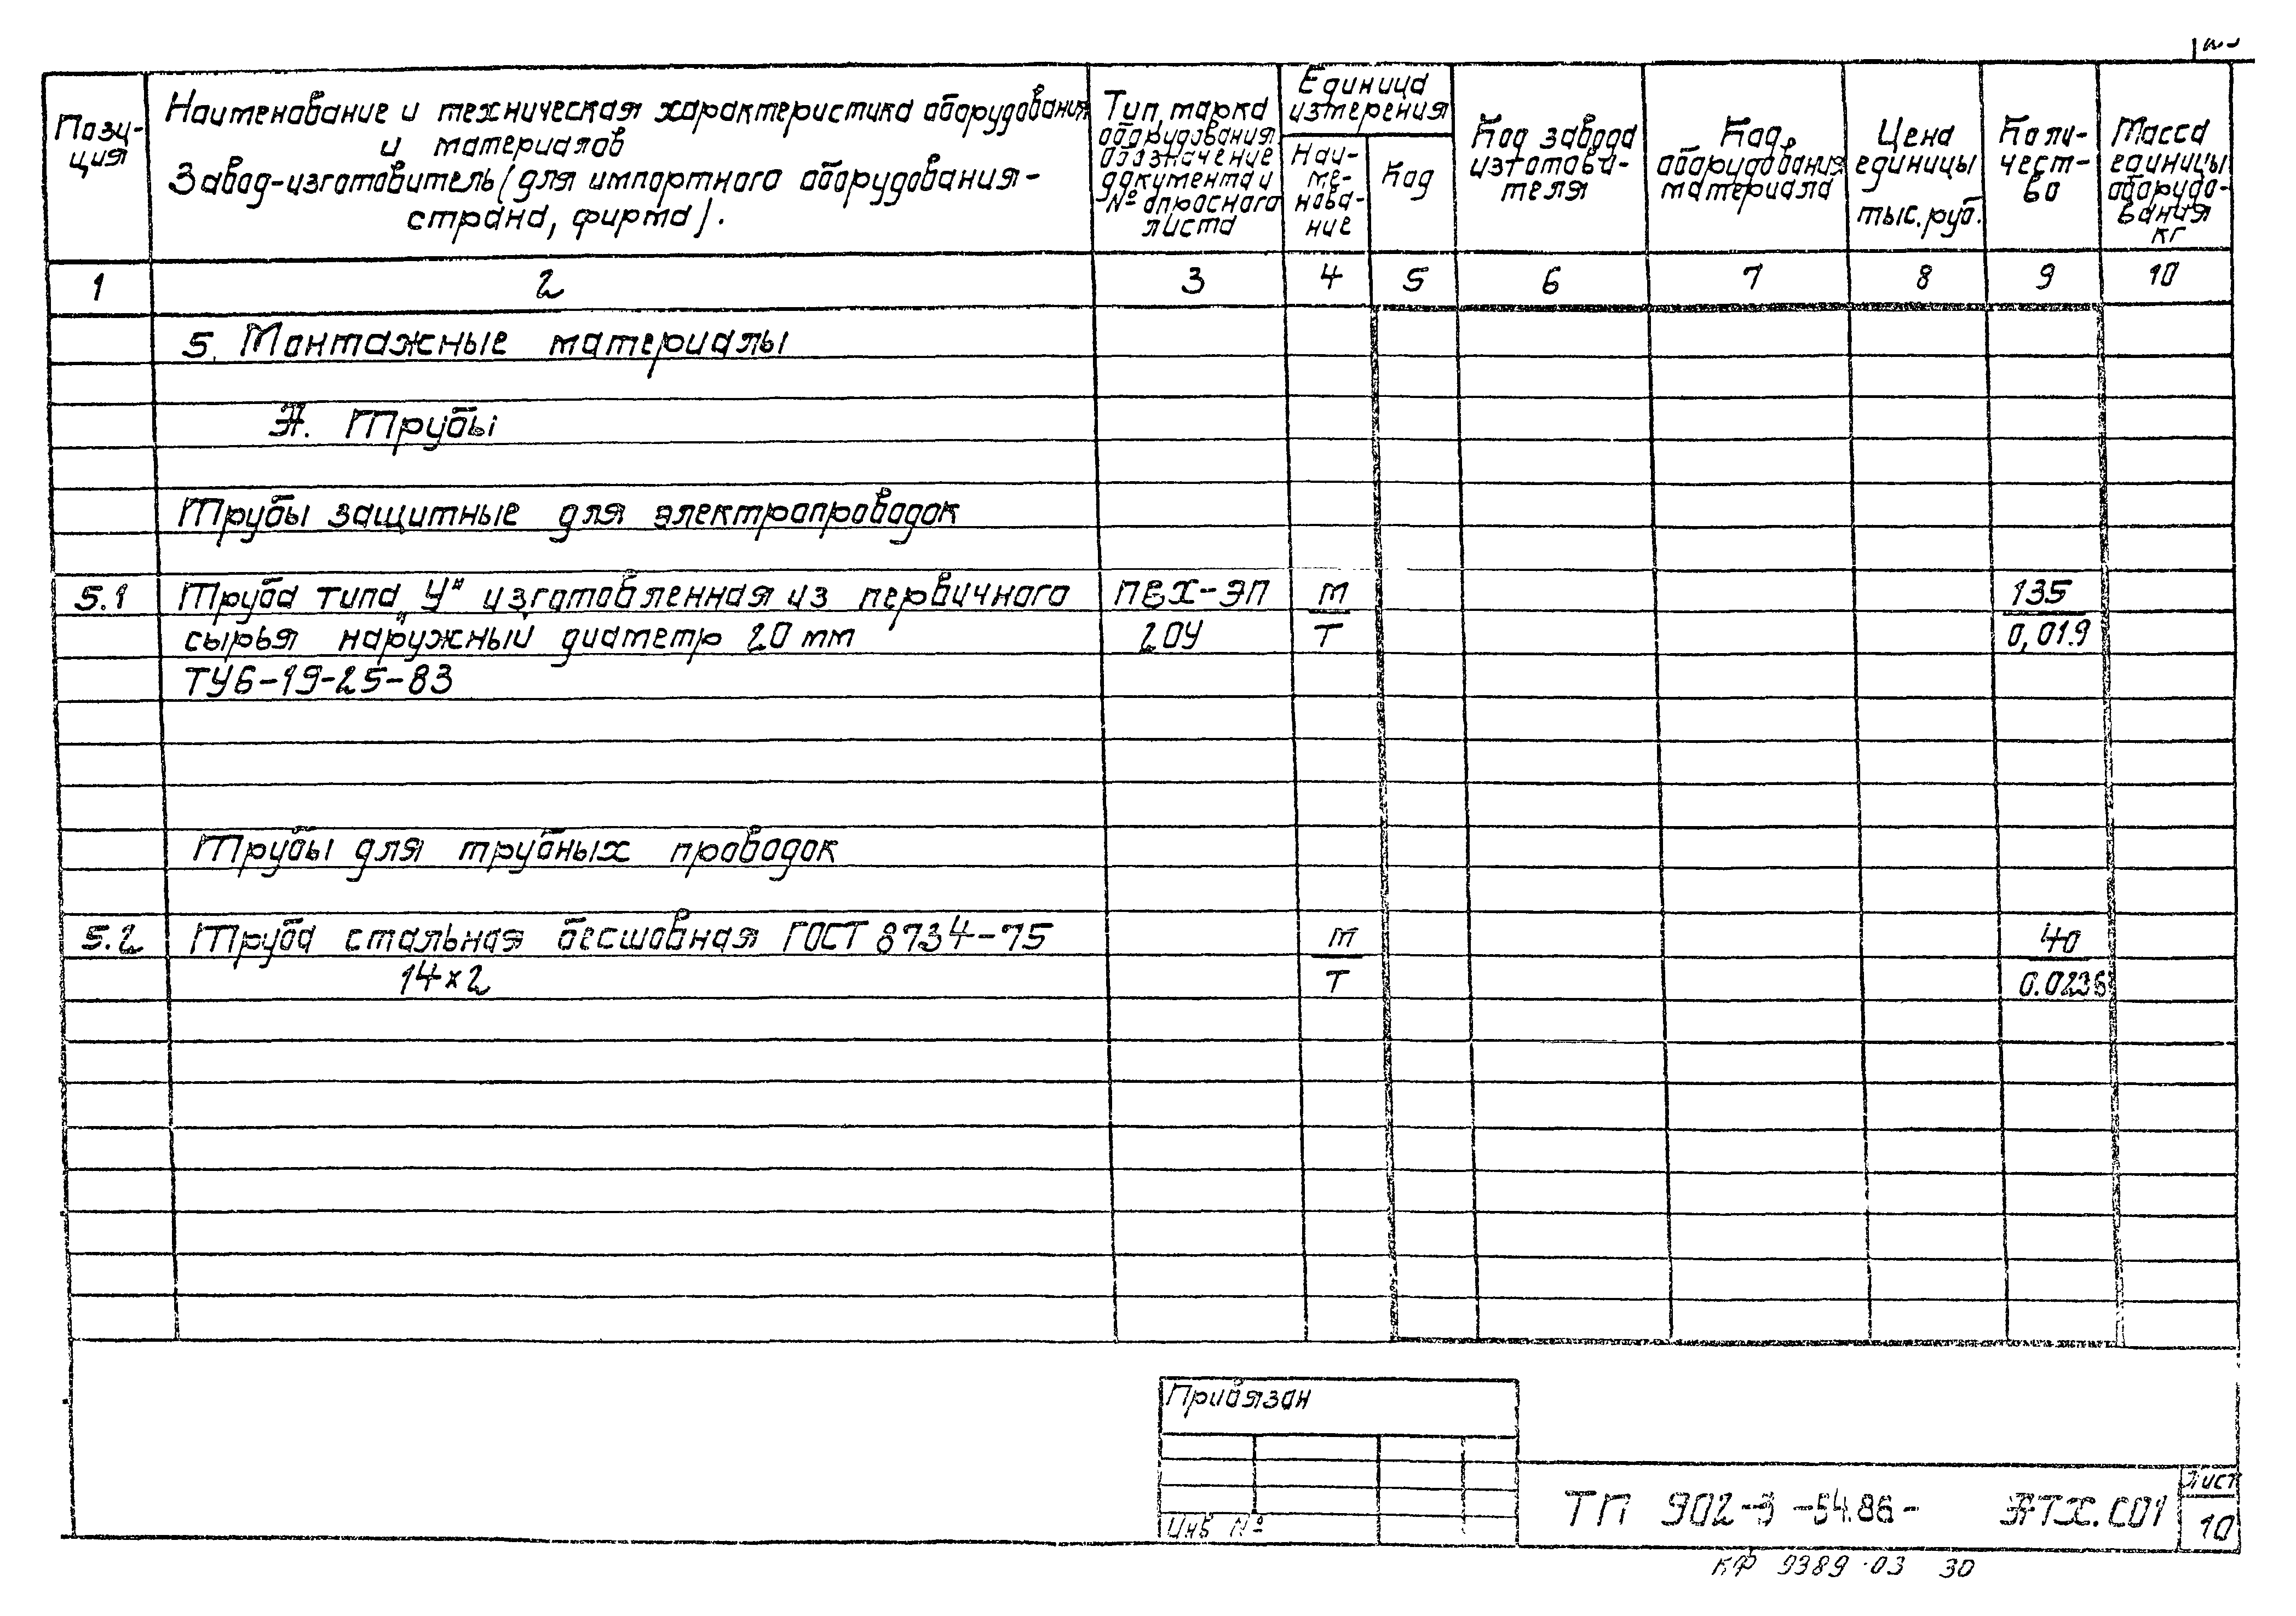 Пози-
ция
Наименование и техническая характеристика оборудования
и материалов
Завод-изготовитель (для импортного оборудования-
страна, фирма).
Тип, марка
оборудования
обозначение
документа и
№ опросного
листа
Единица
измерения
Наи-
ме-
нова-
ние
Код
Код завода
изготови-
теля
Код
оборудования
материала
Цена
единицы
тыс. руб.
Коли-
чест-
во
Масса
единицы
оборудо-
вания
кг
1 2 3 4 5 6 7 8 9 10
5. Монтажные материалы
А. Трубы
Трубы защитные для электропроводок
5.1 Труба типа „У" изготовленная из первичного ПВХ-ЭП м 135
сырья наружный диаметр 20 мм 20У т 0,019
ТУ6-19-25-83
Трубы для трубных проводок
5.2 Труба стальная бесшовная ГОСТ 8734-75 м 40
14×2 т 0.0236
Привязан
Инв №
ТП 902-3-54.86- АТХ.СО1
Лист
10
КФ 9389-03 30